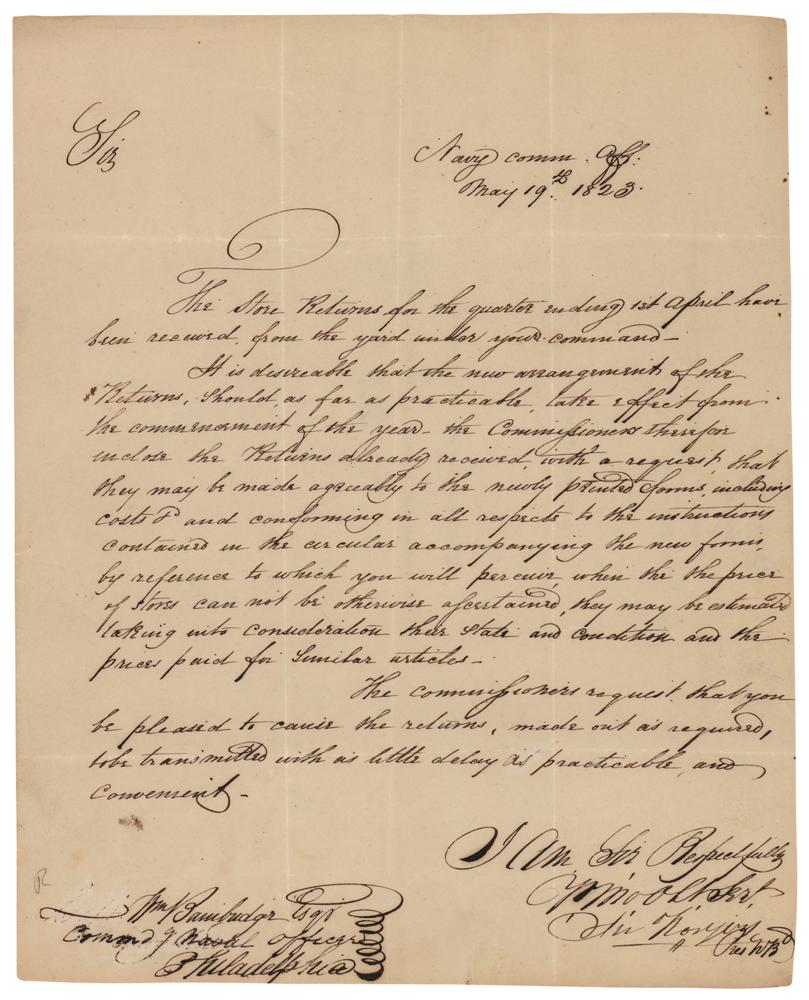 Sir
Navy comm. Off:
May 19th. 1823.
The Store Returns for the quarter ending 1st April have
been received, from the yard under your command —
It is desireable that the new arrangement of the
Returns, should, as far as practicable, take effect from
the commencement of the year - the Commissioners therefore
inclose the Returns already received, with a request, that
they may be made agreeably to the newly printed forms, including
costs & and conforming in all respects to the instructions
contained in the circular accompanying the new forms,
by reference to which you will perceive, when the the price
of Stores can not be otherwise ascertained, they may be estimated
taking into consideration their State and condition and the
prices paid for Similar articles —
The commissioners request, that you
be pleased to cause the returns, made out as required,
to be transmitted with as little delay as practicable, and
convenient —
I Am Sir Respectfully
Yr Mo Obt Sert.
Jn Rodgers
Pres N B
Wm Bainbridge Esqr
Commdg Naval Officer
Philadelphia
R